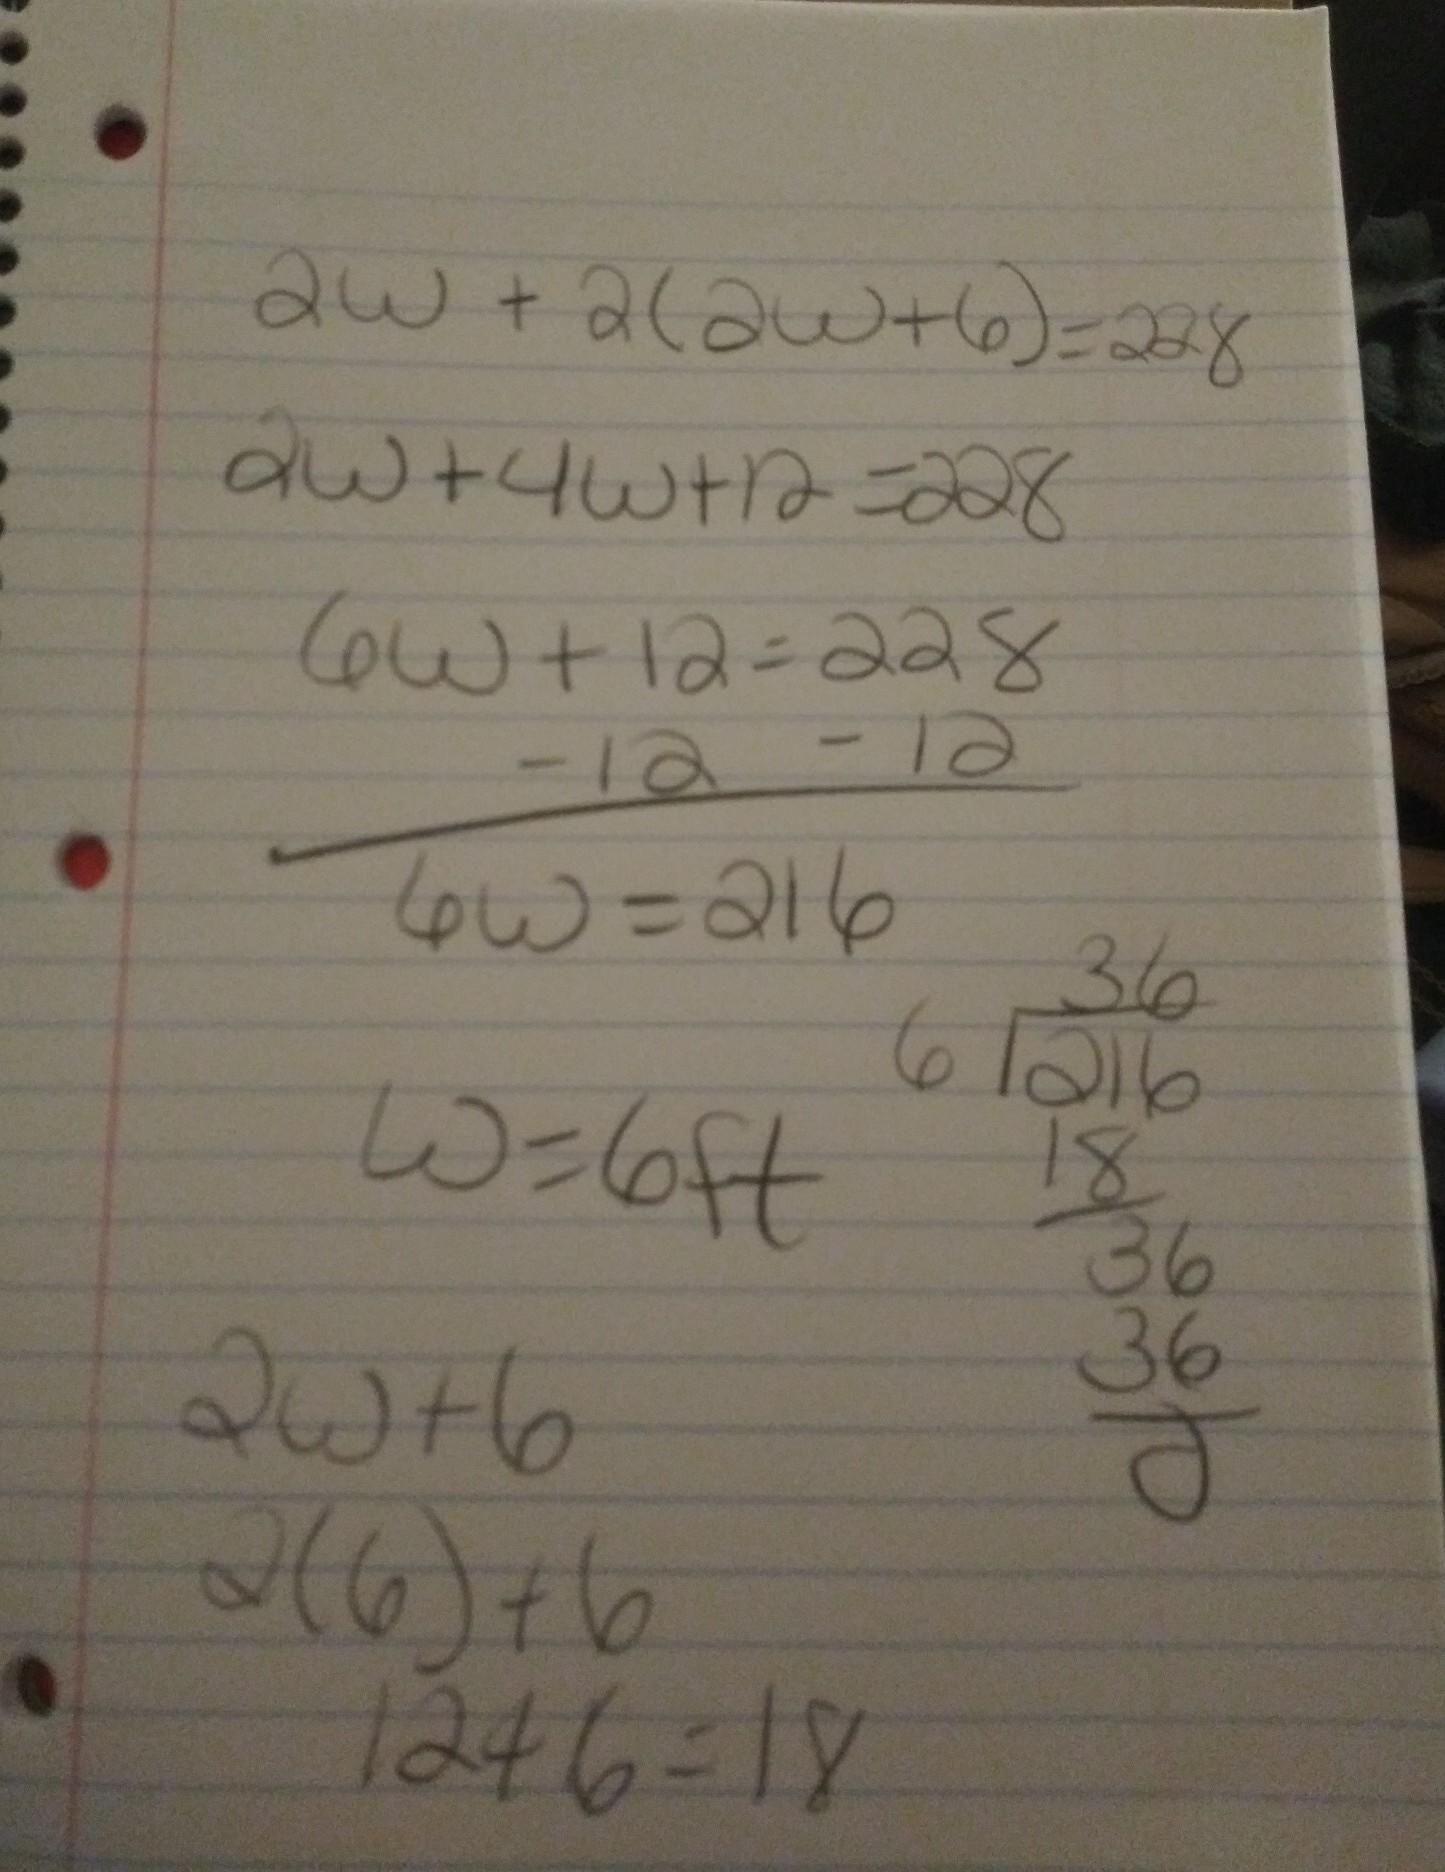 2w + 2(2w+6)=228
2w+4w+12=228
6w+12=228
-12 -12
6w=216
36
6 216
18
w=6ft
36
36
0
2w+6
2(6)+6
12+6=18